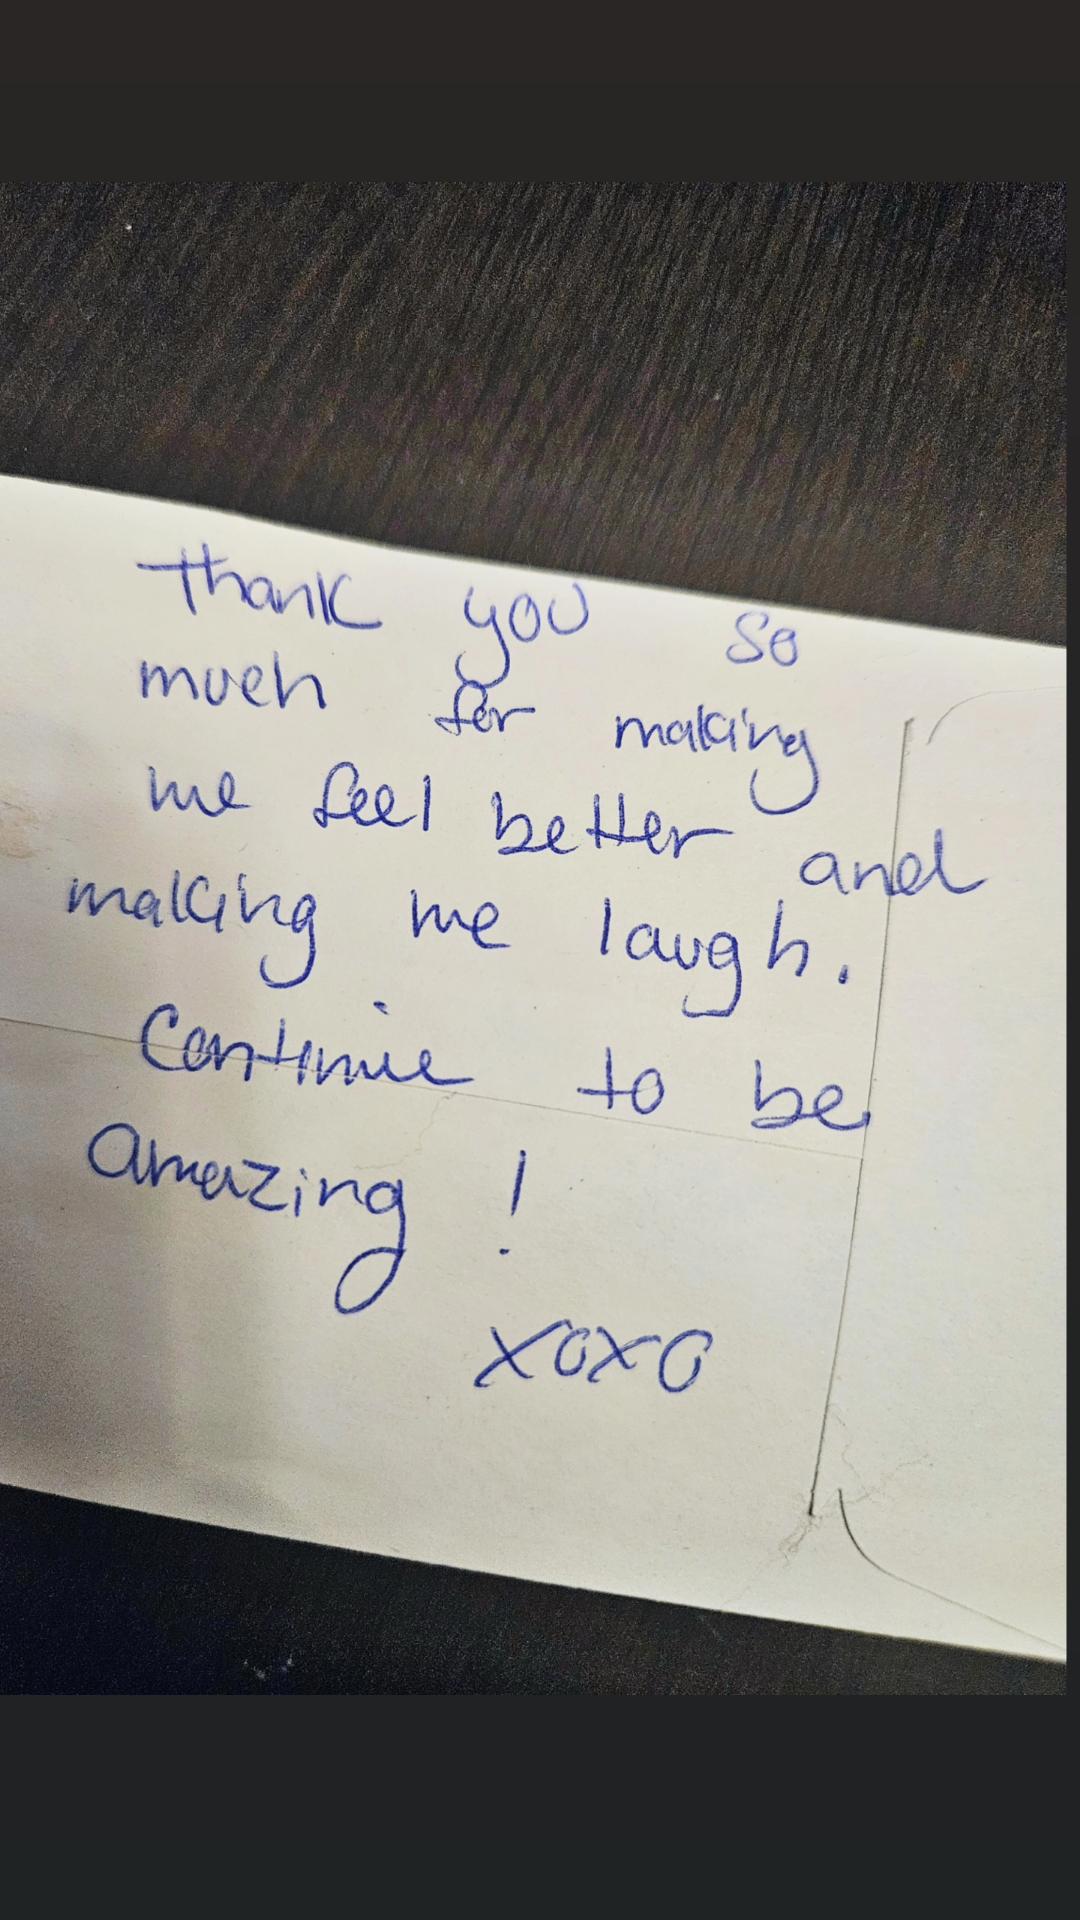 Thank you so
much for making
me feel better and
making me laugh.
Continue to be
amazing !
xoxo